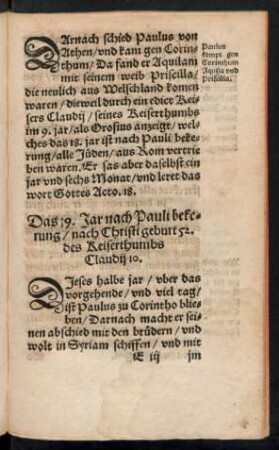 DArnach schied Paulus von
Athen / vnd kam gen Corin-
thum / Da fand er Aquilam
mit seinem weib Priscilla /
die neulich aus Welschland komen
waren / dieweil durch ein edict Kei-
sers Claudij / seines Keiserthumbs
im 9. jar / als Orosius anzeigt / wel-
ches das 18. jar ist nach Pauli bekę-
rung / alle Jüden / aus Rom vertrie
ben waren. Er sas aber daselbst ein
jar vnd sechs Monat / vnd leret das
wort Gottes Acto. 18.
Paulus
kompt gen
Corinthum
Aquila vnd
Priscilla.
Das 19. Jar nach Pauli beke-
rung / nach Christi geburt 52.
des Keiserthumbs
Claudij 10.
DIeses halbe jar / vber das
vorgehende / vnd viel tag /
ist Paulus zu Corintho blie-
ben / Darnach macht er sei-
nen abschied mit den brüdern / vnd
wolt in Syriam schiffen / vnd mit
E iij jm